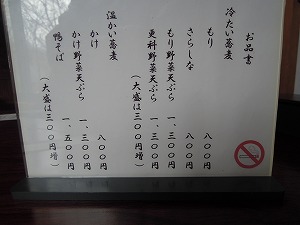 お品書
冷たい蕎麦
もり 八〇〇円
さらしな 八〇〇円
もり野菜天ぷら 一、三〇〇円
更科野菜天ぷら 一、三〇〇円
(大盛は三〇〇円増)
温かい蕎麦
かけ 八〇〇円
かけ野菜天ぷら 一、三〇〇円
鴨そば 一、五〇〇円
(大盛は三〇〇円増)